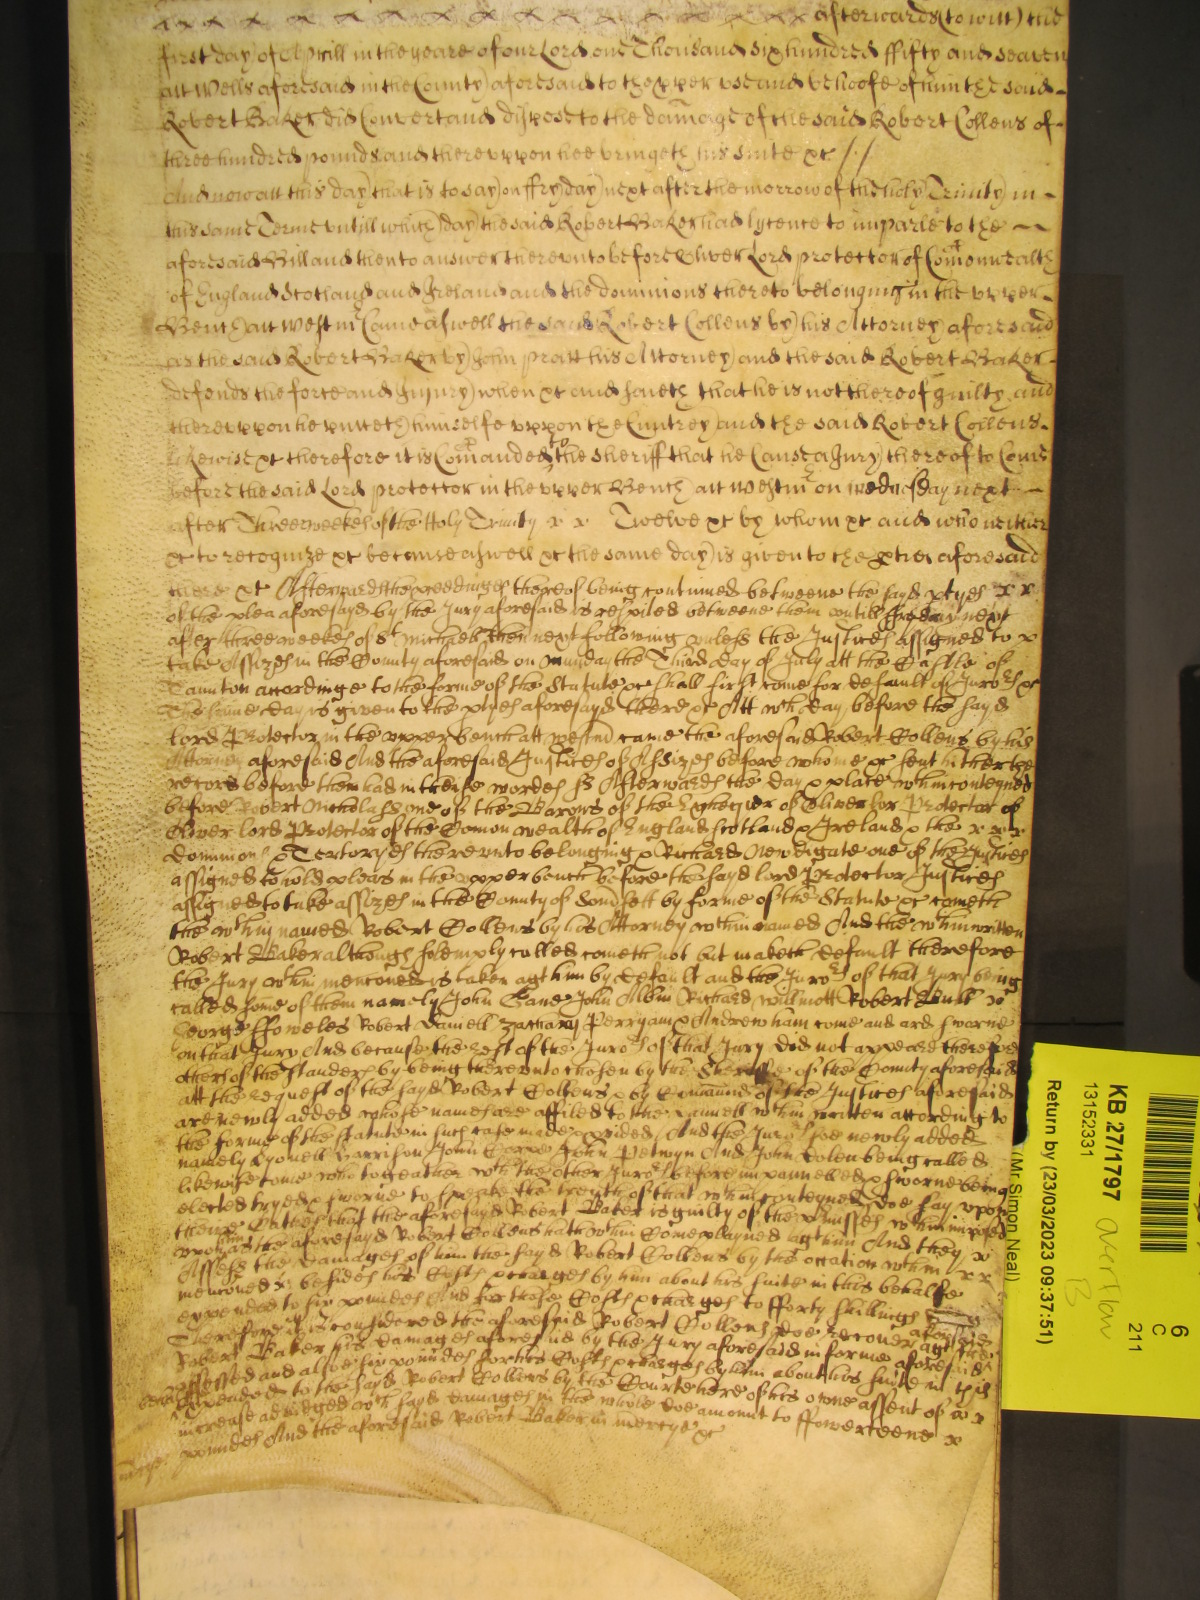 x x x x x x x x x x x x x x x x afterwards (to witt) the
first day of Aprill in the yeare of our Lord one Thousand six hundred ffifty and seaven
att Wells aforesaid in the County aforesaid to the pper use and behoofe of him the said
Robert Baker did Convert and dispose to the damage of the said Robert Collens of
three hundred pounds and thereuppon hee bringeth his suite xc //
And now att this day that is to say on ffryday next after the morrow of the holy Trinity in
this same Terme untill which day the said Robert Baker had lycence to imparle to the
aforesaid Bill and then to answer thereunto before Oliver Lord protector of Comonwealth
of England Scotland and Ireland and the dominions thereto belonging in the upper
Bench att Westm Came aswell the said Robert Collens by his Attorney aforesaid
as the said Robert Baker by John pratt his Attorney and the said Robert Baker
defends the force and Injury when xc and saieth that he is not thereof guilty and
thereuppon he putteth himselfe uppon the Cuntrey and the said Robert Collens
likewise xc therefore it is Comanded to the sheriff that he Cause a Jury thereof to Come
before the said Lord protector in the upper Bench att Westm on wednesday next
after Three weekes of the Holy Trinity x x Twelve xc by whom xc and who neither
xc to recognize xc because aswell xc the same day is given to the pties aforesaid
there xc Afterwards the pceedinges thereof being continued betweene the sayd ptyes x x
of the plea aforesayd by the Jury aforesaid is respited betweene them untill ffryday next
after three weekes of St Michaell then next following unless the Justices assigned to x
take Assizes in the County aforesaid on munday the Third day of July att the Castle of
Taunton accordinge to the forme of the Statute xc shall first come for default of Juro rs xc
The same day is given to the ptyes aforesayd there xc Att wch day before the sayd
lord Protector in the upper bench att westm came the aforesaid Robert Collens by his
Attorney aforesaid And the aforesaid Justices of Assizes before whome xc sent hither the
record before them had in these wordes ss Afterwardes the day & place wthin conteyned
before Robert Nicholas one of the Barons of the Exchequer of Oliver lor Protector of
Oliver lord Protector of the Comon wealth of England Scotland & Ireland & the x x x
dominions & Terrytoryes thereunto belonging & Richard Newdigate one of the Justices
assigned to hold pleas in the upper bench before the sayd lord Protector Justices
assigned to take assizes in the County of Somsett by forme of the Statute xc cometh
the wthin named Robert Collens by his Attorney wthin named And the wthin written
Robert Baker although solemply called cometh not but maketh default therefore
the Jury wthin menconed is taken agt him by default and the Juro rs of that Jury being
called some of them namely John Cane John Albin Richard willmott Robert Bull x
George ffoweles Robert Daniell Zachary Perryam & Andrew ham come and are sworne
on that Jury And because the rest of the Juro rs of that Jury did not appeare therefore
others of the standers by being thereunto chosen by the Sheriffe of the County aforesaid
att the request of the sayd Robert Collens & by Comaund of the Justices aforesaid
are newly added whose names are affiled to the pannell wthin written according to
the forme of the statute in such case made & pvided And the Juro rs soe newly added
namely Lyonell Harrison John John Petwyn And John Dolen being called
likewise come who togeather wth the other Juro rs before impannelled & sworne being
elected tryed & sworne to speake the treuth of that wthin conteyned doe say uppon
theire Oathes that the aforesayd Robert Baker is guilty of the pmisses wthin imposed
uppon him as the aforesayd Robert Collens hath wthin Complayned agt him And they x
Assess the damages of him the sayd Robert Collens by the occation wthin x x
menconed besides his Costs & charges by him about his suite in this behalfe
expended to six poundes And for those Costs & charges to fforty shillings
Therefore it is considered the aforesaid Robert Collens doe recover agt the aforesaid
Robert Baker his damages aforesaid by the Jury aforesaid in forme aforesaid
assessed and allsoe six poundes for his Costs & charges by him about his suite in this
behalfe expended to the sayd Robert Collens by the Courte here of his owne assent of x x
increase adiudged wch sayd damages in the whole doe amount to ffowerteene x
poundes And the aforesaid Robert Baker in mercye xc
KB 27/1797
13152331
Return by (23/03/2023 09:37:51)
(Mr Simon Neal)
6
C
211
overflow
B